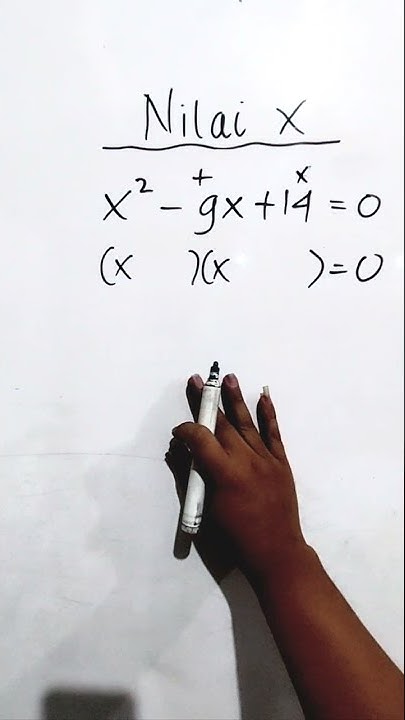 Nilai x
+ x
x² - 9x + 14 = 0
(x )(x ) = 0